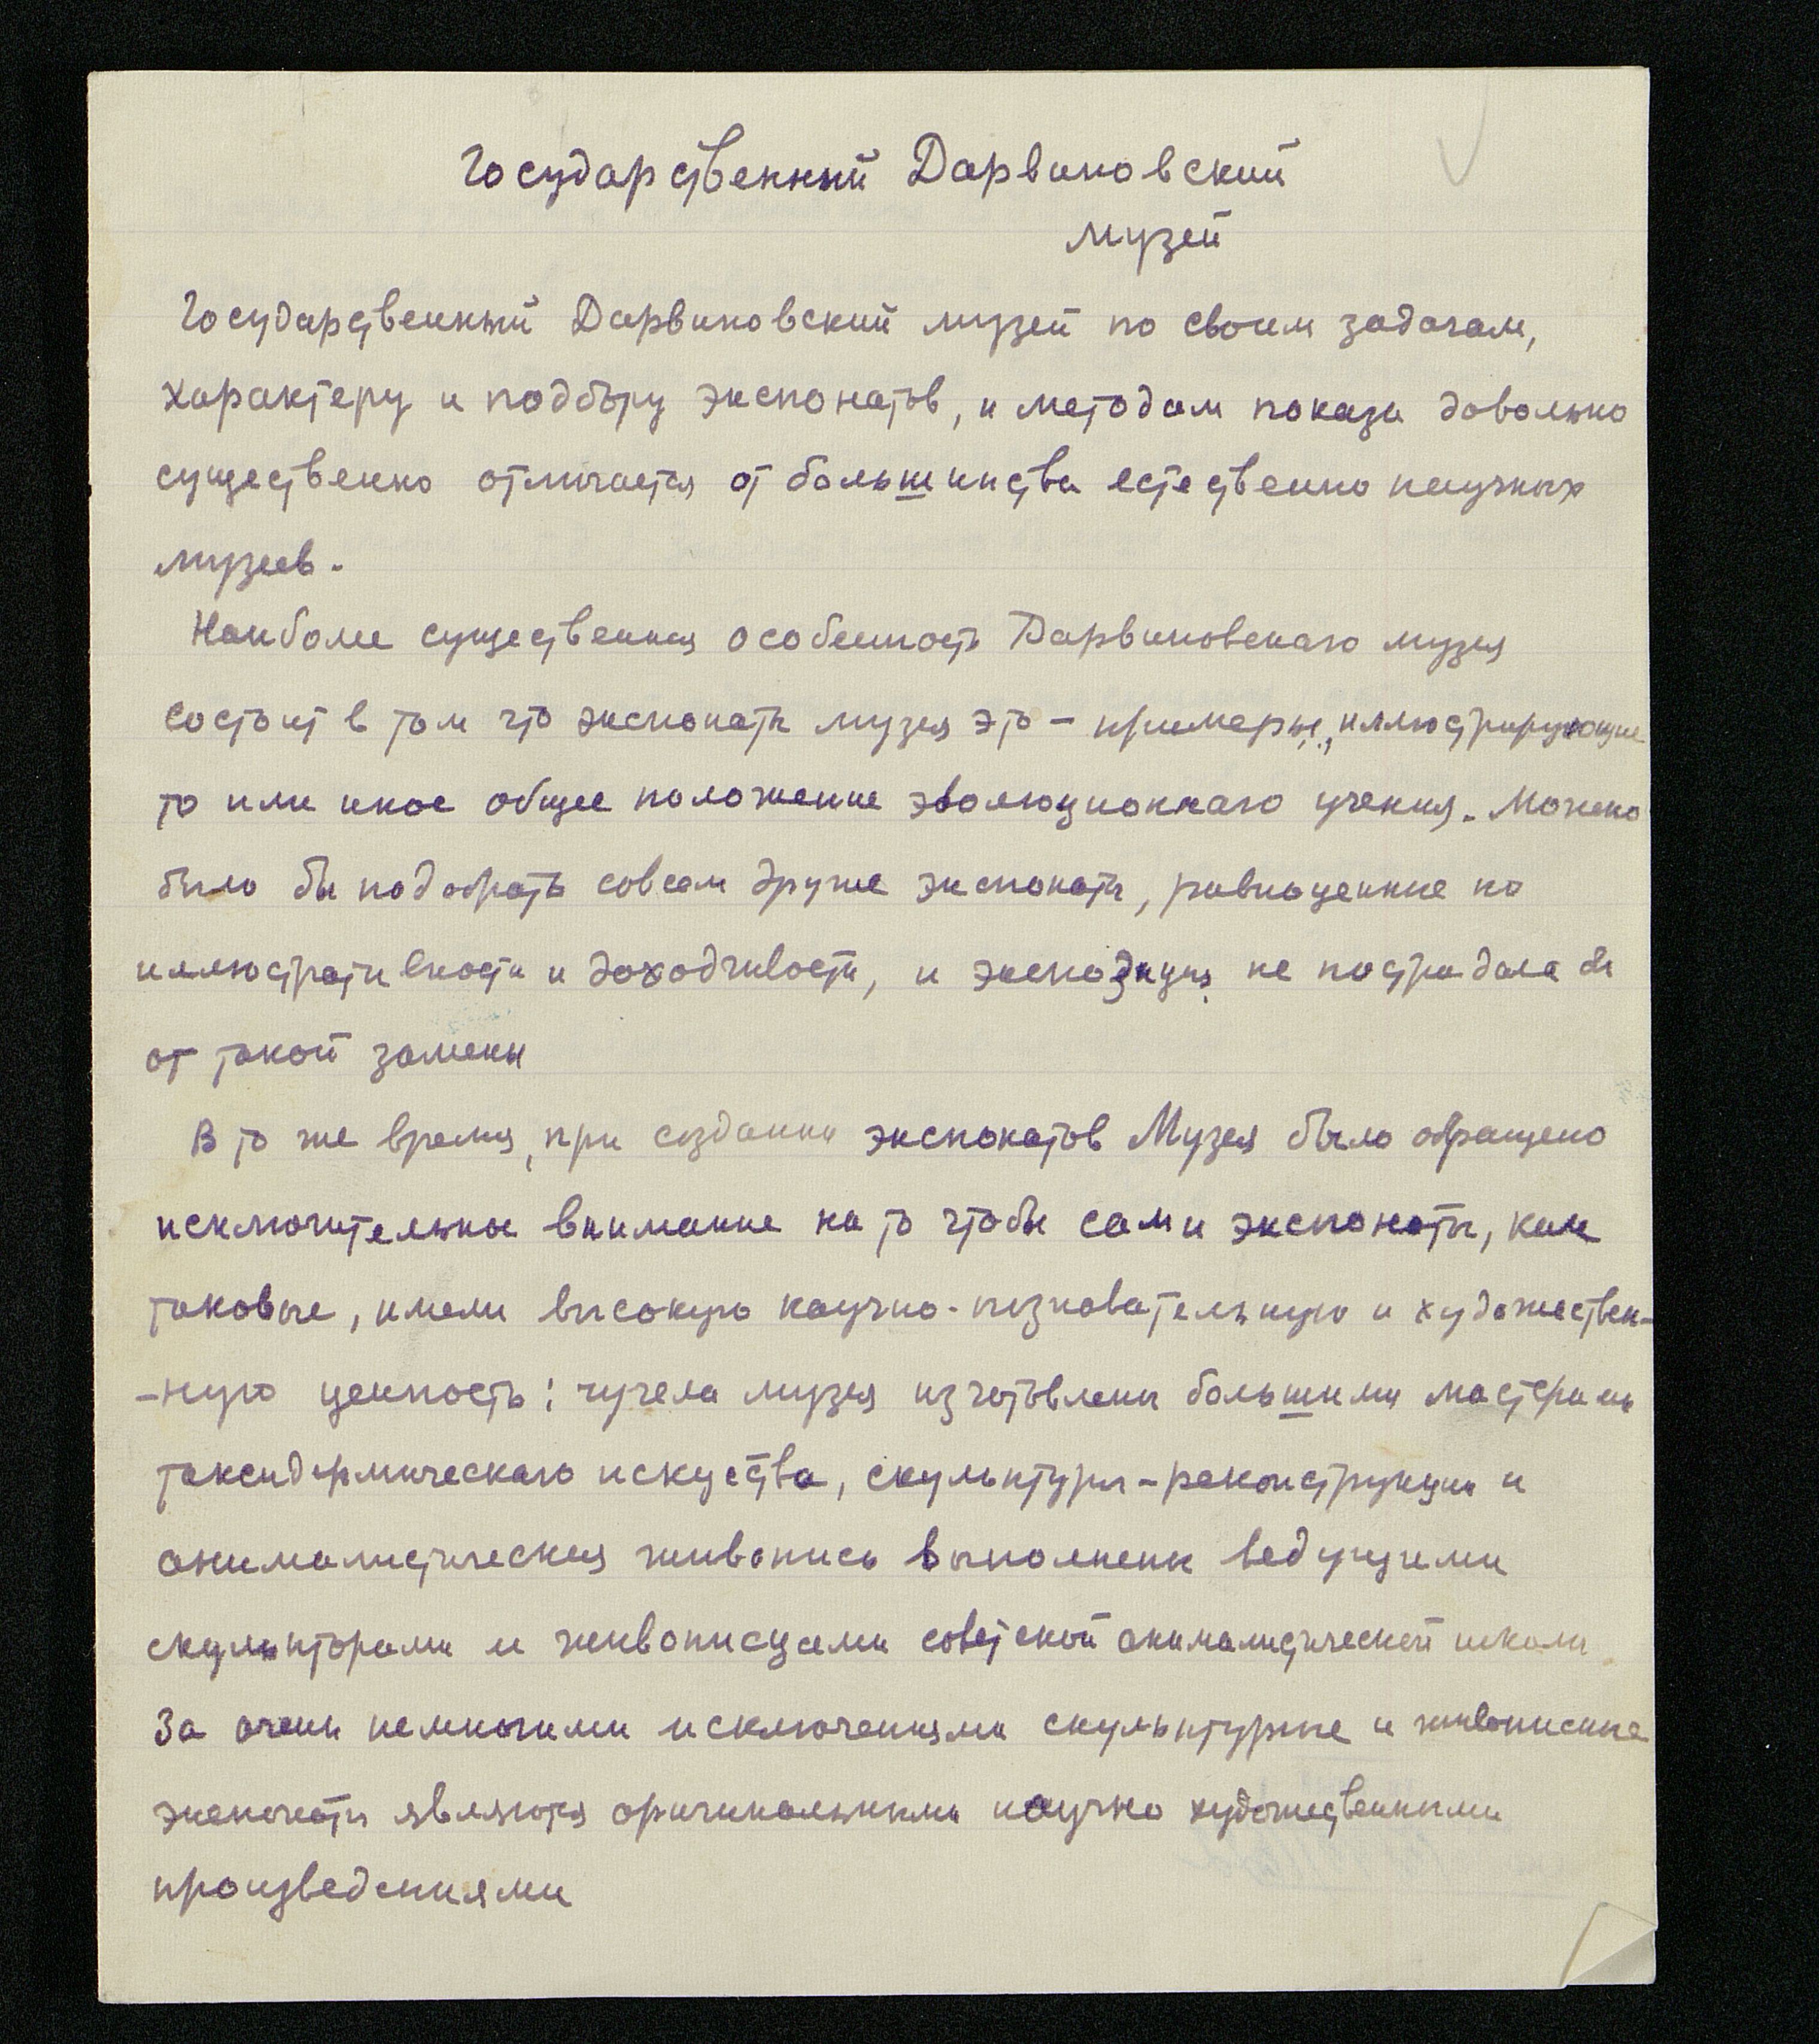 Государственный Дарвиновский
музей
Государственный Дарвиновский музей по своим задачам,
характеру и подбору экспонатов, и методам показа довольно
существенно отличается от большинства естественно научных
музеев.
Наиболее существенная особенность Дарвиновскаго музея
состоит в том что экспонаты музея это - примеры, иллюстрирующие
то или иное общее положение эволюционнаго учения. Можно
было бы подобрать совсем другие экспонаты, равноценные по
иллюстративности и доходчивости, и экспозиция не пострадала бы
от такой замены
В то же время, при создании экспонатов Музея было обращено
исключительное внимание на то чтобы сами экспонаты, как
таковые, имели высокую научно-познавательную и художествен-
-ную ценность: чучела музея изготовлены большими мастерами
таксидермическаго искуства, скульптуры-реконструкции и
анималистическая живопись выполнены ведущими
скульпторами и живописцами советской анималистической школы.
За очень немногими исключениями скульптурные и живописные
экспонаты являются оригинальными научно художественными
произведениями